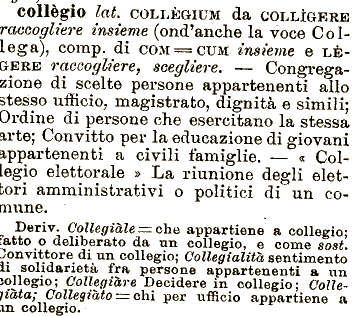 collègio lat. COLLÈGIUM da COLLÍGERE
raccogliere insieme (ond'anche la voce Col-
lega), comp. di COM = CUM insieme e LÈ-
GERE raccogliere, scegliere. — Congrega-
zione di scelte persone appartenenti allo
stesso ufficio, magistrato, dignità e simili;
Ordine di persone che esercitano la stessa
arte; Convitto per la educazione di giovani
appartenenti a civili famiglie. — « Col-
legio elettorale » La riunione degli elet-
tori amministrativi o politici di un co-
mune.
Deriv. Collegiàle = che appartiene a collegio;
fatto o deliberato da un collegio, e come sost.
Convittore di un collegio; Collegialità sentimento
di solidarietà fra persone appartenenti a un
collegio; Collegiàre Decidere in collegio; Colle-
giàta; Collegiàto = chi per ufficio appartiene a
un collegio.